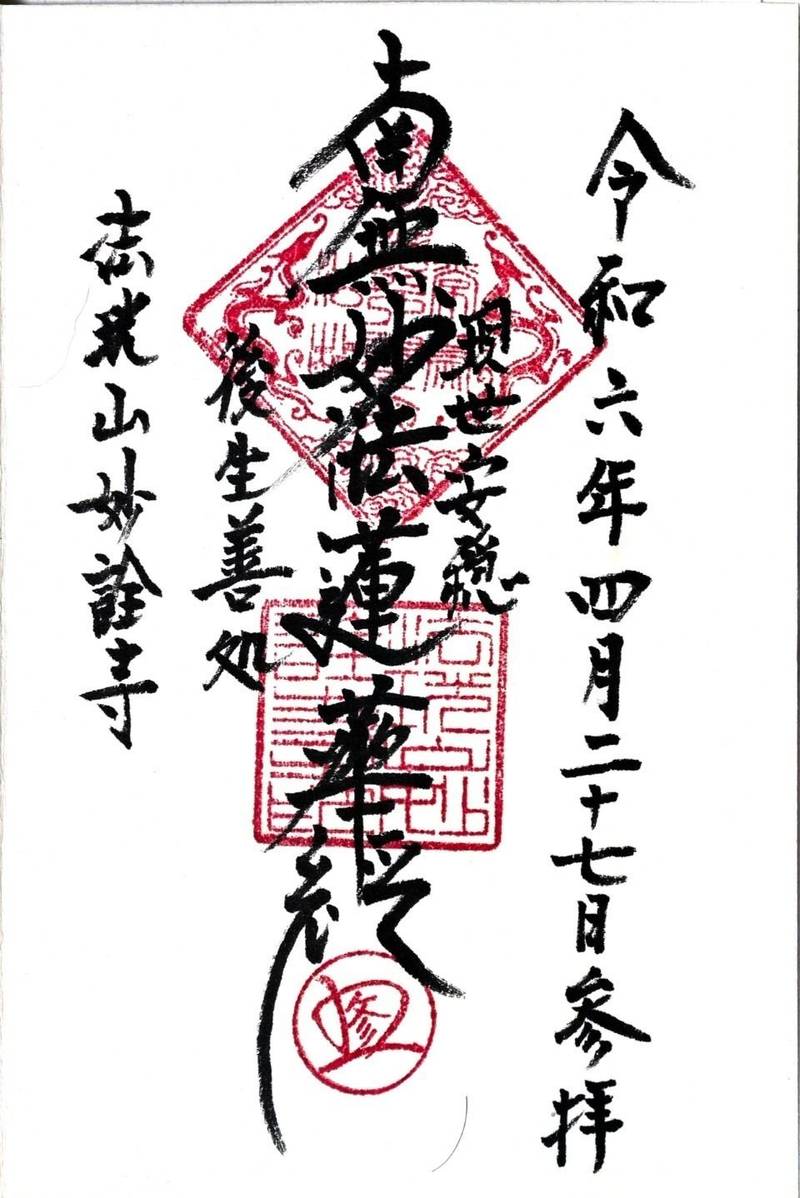 令和六年四月二十七日参拝
現世安穏
南無妙法蓮華経
後生善処
山妙詮寺